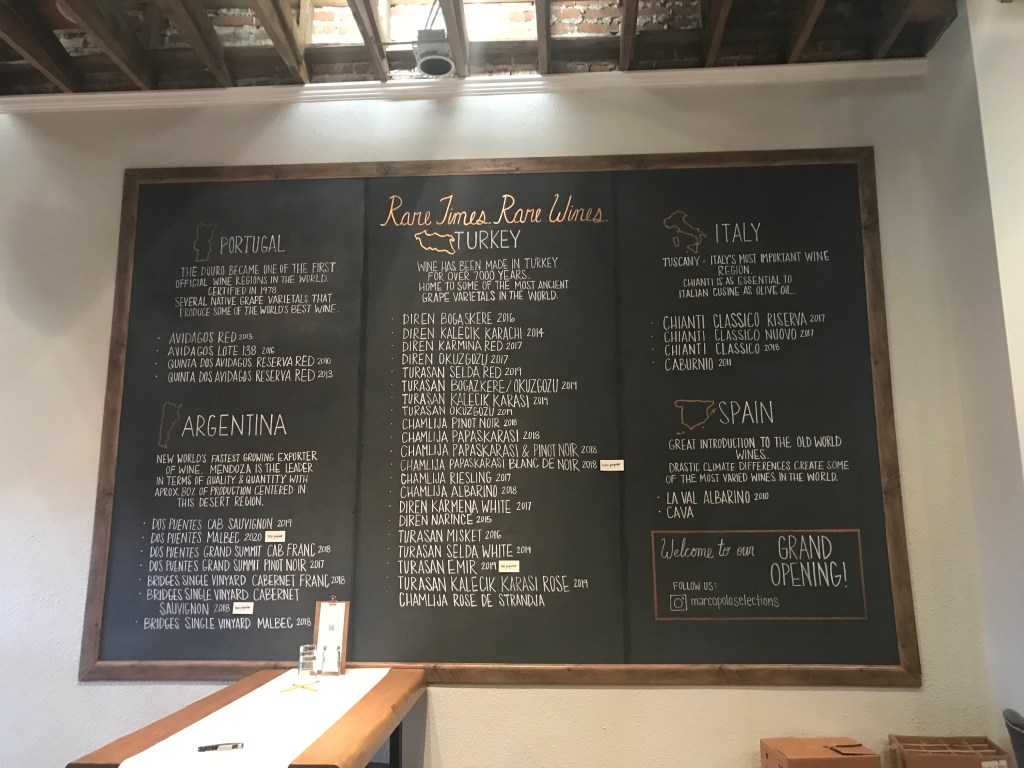 Rare Times Rare Wines
PORTUGAL
THE DOURO BECAME ONE OF THE FIRST
OFFICIAL WINE REGIONS IN THE WORLD.
CERTIFIED IN 1978
SEVERAL NATIVE GRAPE VARIETALS THAT
PRODUCE SOME OF THE WORLD'S BEST WINE.
· AVIDAGOS RED 2013
· AVIDAGOS LOTE 138 2016
· QUINTA DOS AVIDAGOS RESERVA RED 2010
· QUINTA DOS AVIDAGOS RESERVA RED 2013
ARGENTINA
NEW WORLD'S FASTEST GROWING EXPORTER
OF WINE. MENDOZA IS THE LEADER
IN TERMS OF QUALITY & QUANTITY WITH
APROX. 80% OF PRODUCTION CENTERED IN
THIS DESERT REGION.
· DOS PUENTES CAB SAUVIGNON 2019
· DOS PUENTES MALBEC 2020
· DOS PUENTES GRAND SUMMIT CAB FRANC 2018
· DOS PUENTES GRAND SUMMIT PINOT NOIR 2017
· BRIDGES SINGLE VINYARD CABERNET FRANC 2018
· BRIDGES SINGLE VINYARD CABERNET
SAUVIGNON 2018
· BRIDGES SINGLE VINYARD MALBEC 2018
TURKEY
WINE HAS BEEN MADE IN TURKEY
FOR OVER 7000 YEARS.
HOME TO SOME OF THE MOST ANCIENT
GRAPE VARIETALS IN THE WORLD.
· DIREN BOGASKERE 2016
· DIREN KALECIK KARACHI 2014
· DIREN KARMINA RED 2017
· DIREN OKUZGOZU 2017
· TURASAN SELDA RED 2019
· TURASAN BOGAZKERE/OKUZGOZU 2019
· TURASAN KALECIK KARASI 2019
· TURASAN OKUZGOZU 2019
· CHAMLIJA PINOT NOIR 2018
· CHAMLIJA PAPASKARASI 2018
· CHAMLIJA PAPASKARASI & PINOT NOIR 2018
· CHAMLIJA PAPASKARASI BLANC DE NOIR 2018
· CHAMLIJA RIESLING 2017
· CHAMLIJA ALBARINO 2018
· DIREN KARMENA WHITE 2017
· DIREN NARINCE 2015
· TURASAN MISKET 2016
· TURASAN SELDA WHITE 2019
· TURASAN EMIR 2019
· TURASAN KALECIK KARASI ROSE 2019
· CHAMLIJA ROSE DE STRANDJA
ITALY
TUSCANY - ITALY'S MOST IMPORTANT WINE
REGION.
CHIANTI IS AS ESSENTIAL TO
ITALIAN CUSINE AS OLIVE OIL.
· CHIANTI CLASSICO RISERVA 2017
· CHIANTI CLASSICO NUOVO 2017
· CHIANTI CLASSICO 2018
· CABURNIO 2011
SPAIN
GREAT INTRODUCTION TO THE OLD WORLD
WINES.
DRASTIC CLIMATE DIFFERENCES CREATE SOME
OF THE MOST VARIED WINES IN THE WORLD.
· LA VAL ALBARINO 2010
· CAVA
Welcome to our GRAND
OPENING!
FOLLOW US:
marcopoloselections